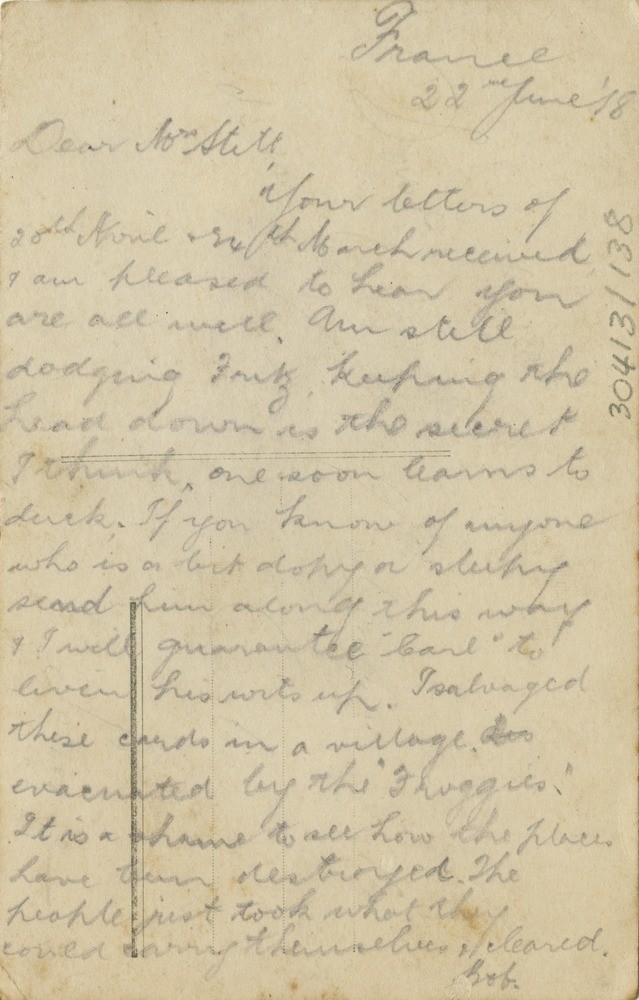 France
22nd June '18
Dear Mrs Still,
Your letters of
20th April & 24th March received
I am pleased to hear you
are all well. Am still
dodging Fritz, keeping the
head down is the secret
I think, one soon learns to
duck. If you know of anyone
who is a bit dopy or sleepy
send him along this way
& I will guarantee "Carl" to
liven his wits up. I salvaged
these cards in a village
evacuated by the "Froggies".
It is a shame to see how the places
have been destroyed. The
people just took what they
could carry themselves & cleared.
Bob.
30413/138